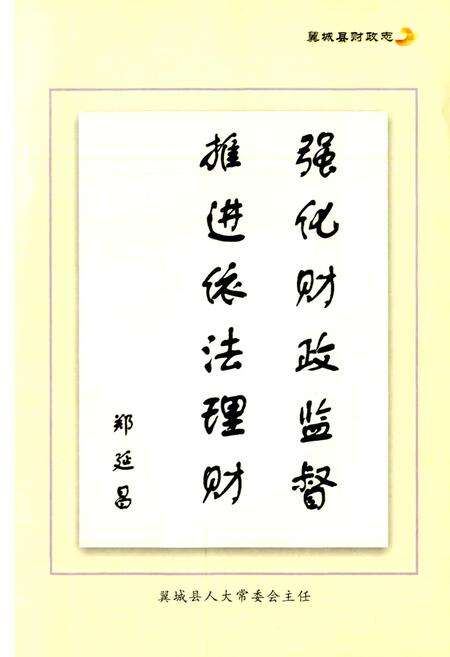 翼城县财政志
强化财政监督
推进依法理财
郑延昌
翼城县人大常委会主任